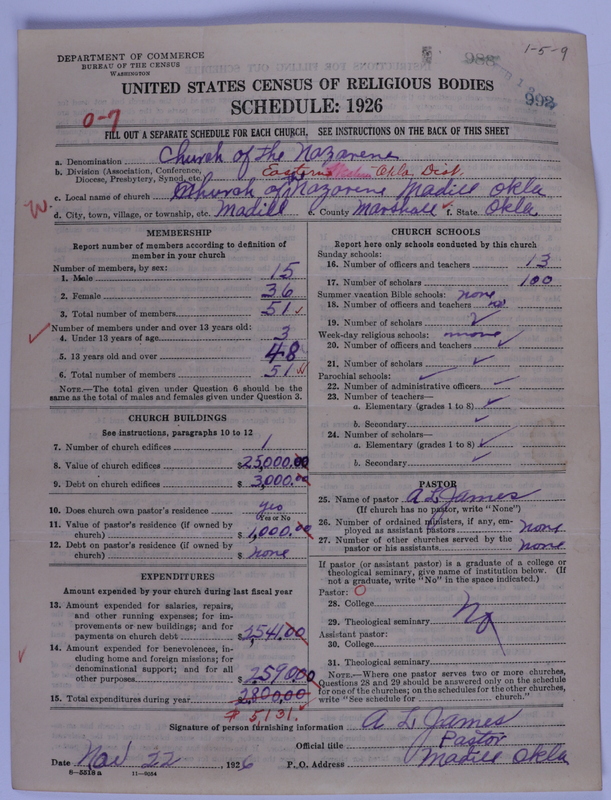 DEPARTMENT OF COMMERCE
BUREAU OF THE CENSUS
WASHINGTON
988
1-5-9
992
UNITED STATES CENSUS OF RELIGIOUS BODIES
SCHEDULE: 1926
0-7
FILL OUT A SEPARATE SCHEDULE FOR EACH CHURCH, SEE INSTRUCTIONS ON THE BACK OF THIS SHEET
a. Denomination Church of the Nazarene
b. Division (Association, Conference, Diocese, Presbytery, Synod, etc.) Eastern Okla Dist.
c. Local name of church Church of Nazarene Madill Okla
W.
d. City, town, village, or township, etc. Madill e. County Marshall f. State Okla
MEMBERSHIP
Report number of members according to definition of member in your church
Number of members, by sex:
1. Male 15
2. Female 36
3. Total number of members 51
Number of members under and over 13 years old:
4. Under 13 years of age 3
5. 13 years old and over 48
6. Total number of members 51
NOTE.—The total given under Question 6 should be the same as the total of males and females given under Question 3.
CHURCH BUILDINGS
See instructions, paragraphs 10 to 12
7. Number of church edifices 1
8. Value of church edifices $ 25,000.00
9. Debt on church edifices $ 3,000.00
10. Does church own pastor's residence yes
(Yes or No)
11. Value of pastor's residence (if owned by church) $ 1,000.00
12. Debt on pastor's residence (if owned by church) $ none
EXPENDITURES
Amount expended by your church during last fiscal year
13. Amount expended for salaries, repairs, and other running expenses; for improvements or new buildings; and for payments on church debt $ 2541.00
14. Amount expended for benevolences, including home and foreign missions; for denominational support; and for all other purposes $ 2590.00
15. Total expenditures during year 2800.00
$ 5131.
CHURCH SCHOOLS
Report here only schools conducted by this church
Sunday schools:
16. Number of officers and teachers 13
17. Number of scholars 100
Summer vacation Bible schools: none
18. Number of officers and teachers
19. Number of scholars
Week-day religious schools: none
20. Number of officers and teachers
21. Number of scholars
Parochial schools:
22. Number of administrative officers
23. Number of teachers—
a. Elementary (grades 1 to 8)
b. Secondary
24. Number of scholars—
a. Elementary (grades 1 to 8)
b. Secondary
PASTOR
25. Name of pastor A L James
(If church has no pastor, write "None")
26. Number of ordained ministers, if any, employed as assistant pastors none
27. Number of other churches served by the pastor or his assistants none
If pastor (or assistant pastor) is a graduate of a college or theological seminary, give name of institution below. (If not a graduate, write "No" in the space indicated.)
Pastor: O
28. College
29. Theological seminary No
Assistant pastor:
30. College
31. Theological seminary
NOTE.—Where one pastor serves two or more churches, Questions 28 and 29 should be answered only on the schedule for one of the churches; on the schedules for the other churches, write "See schedule for church."
Signature of person furnishing information A L James
Official title Pastor
Date Nov 22, 1926 P. O. Address Madill Okla
8—5518 a 11—9054